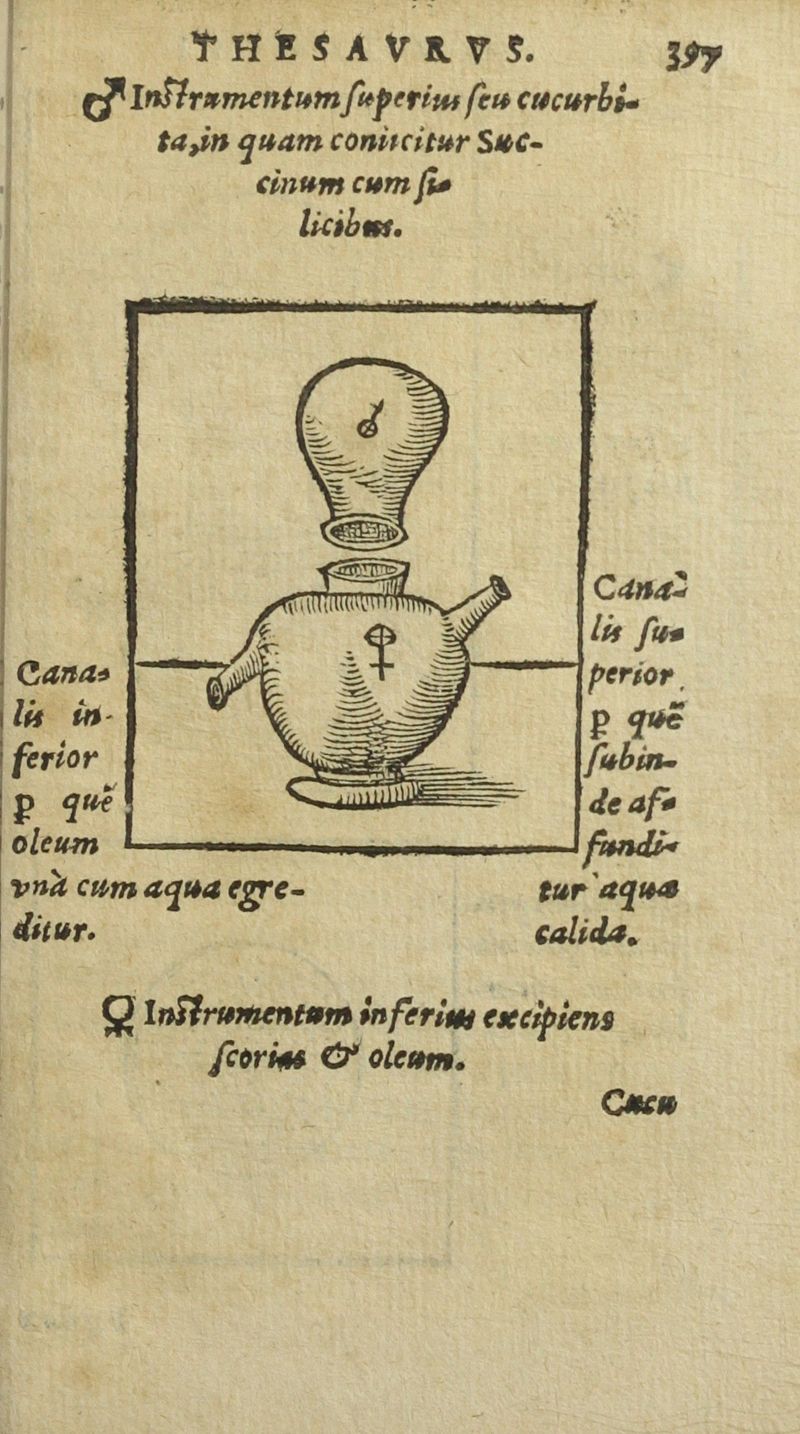 THESAVRVS. 397
♂ Inſtrumentum ſuperius ſeu cucurbi-
ta, in quam coniicitur Suc-
cinum cum ſi-
licibus.
Cana-
lis in-
ferior
ꝑ quẽ
oleum
vnà cum aqua egre-
ditur.
Cana-
lis ſu-
perior
ꝑ quẽ
ſubin-
de af-
fundi-
tur aqua
calida.
♀ Inſtrumentum inferius excipiens
ſcorias & oleum.
Cucu